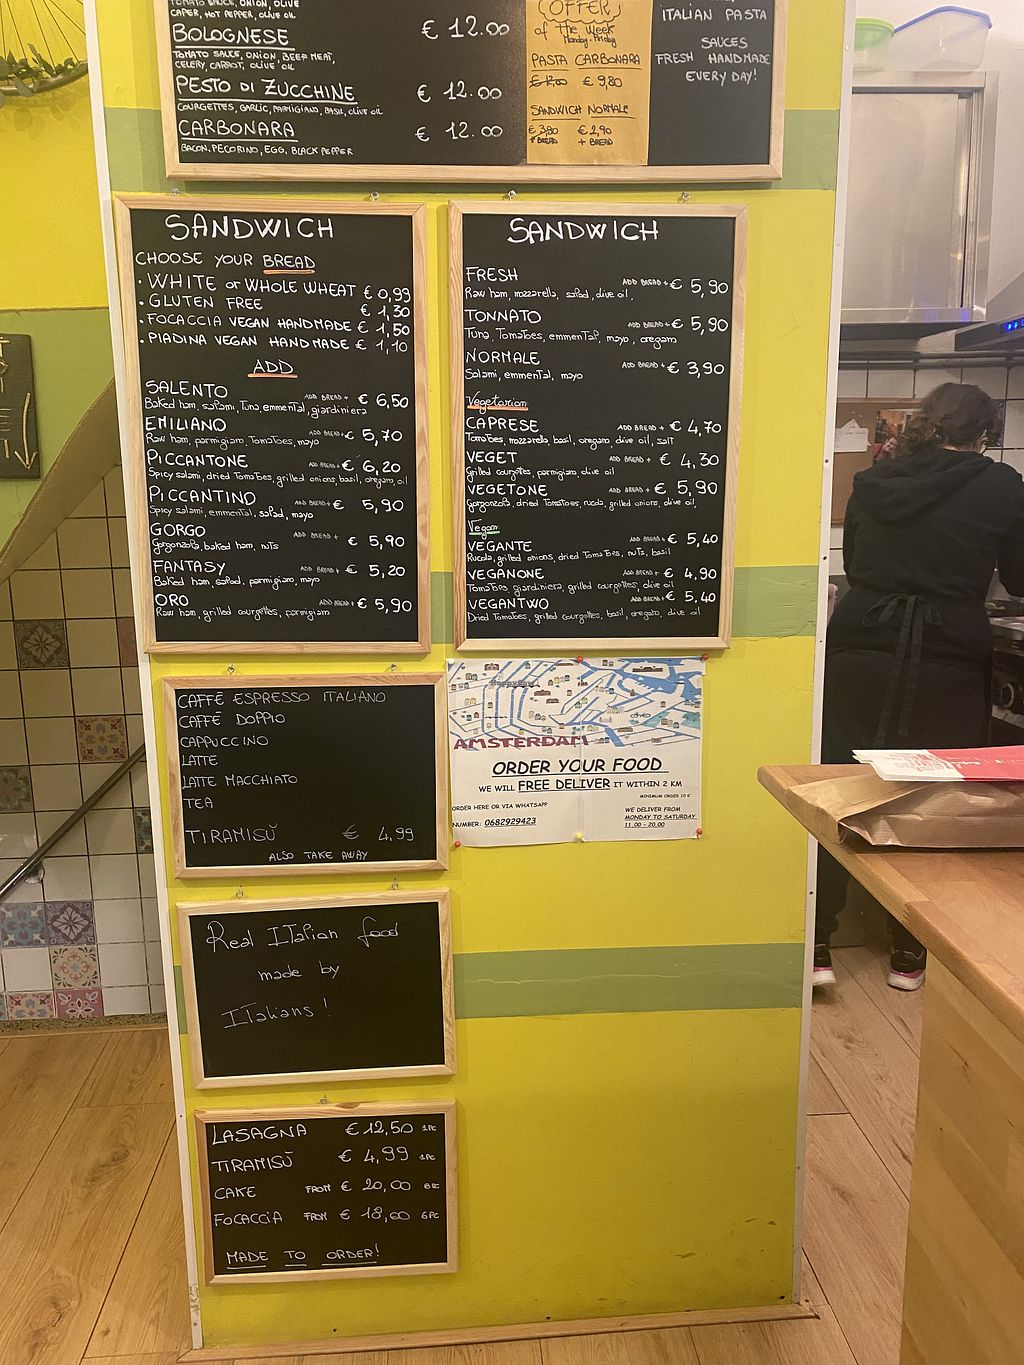 TOMATO SAUCE, ONION, OLIVE
CAPER, HOT PEPPER, OLIVE OIL
BOLOGNESE € 12.00
TOMATO SAUCE, ONION, BEEF MEAT,
CELERY, CARROT, OLIVE OIL
PESTO DI ZUCCHINE € 12.00
COURGETTES, GARLIC, PARMIGIANO, BASIL, OLIVE OIL
CARBONARA € 12.00
BACON, PECORINO, EGG, BLACK PEPPER
OFFER
of The week
Monday-Friday
PASTA CARBONARA
€ 12,00 € 9,80
SANDWICH NORMALE
€ 3,90 € 2,90
+ BREAD + BREAD
ITALIAN PASTA
SAUCES
FRESH HANDMADE
EVERY DAY!
SANDWICH
CHOOSE YOUR BREAD
• WHITE or WHOLE WHEAT € 0,99
• GLUTEN FREE € 1,30
• FOCACCIA VEGAN HANDMADE € 1,50
• PIADINA VEGAN HANDMADE € 1,10
ADD
SALENTO ADD BREAD + € 6,50
Baked ham, salami, Tuna, emmental, giardiniera
EMILIANO ADD BREAD + € 5,70
Raw ham, parmigiano, Tomatoes, mayo
PICCANTONE ADD BREAD + € 6,20
Spicy salami, dried Tomatoes, grilled onions, basil, oregano, oil
PICCANTINO ADD BREAD + € 5,90
Spicy salami, emmental, salad, mayo
GORGO ADD BREAD + € 5,90
Gorgonzola, baked ham, nuts
FANTASY ADD BREAD + € 5,20
Baked ham, salad, parmigiano, mayo
ORO ADD BREAD + € 5,90
Raw ham, grilled courgettes, parmigiano
SANDWICH
FRESH ADD BREAD + € 5,90
Raw ham, mozzarella, salad, olive oil.
TONNATO ADD BREAD + € 5,90
Tuna, Tomatoes, emmental, mayo, oregano
NORMALE ADD BREAD + € 3,90
Salami, emmental, mayo
Vegetarian
CAPRESE ADD BREAD + € 4,70
Tomatoes, mozzarella, basil, oregano, olive oil, salt
VEGET ADD BREAD + € 4,30
Grilled courgettes, parmigiano, olive oil
VEGETONE ADD BREAD + € 5,90
Gorgonzola, dried Tomatoes, rucola, grilled onions, olive oil,
Vegan
VEGANTE ADD BREAD + € 5,40
Rucola, grilled onions, dried Tomatoes, nuts, basil
VEGANONE ADD BREAD + € 4,90
Tomatoes, giardiniera, grilled courgettes, olive oil
VEGANTWO ADD BREAD + € 5,40
Dried Tomatoes, grilled courgettes, basil, oregano, olive oil
CAFFÈ ESPRESSO ITALIANO
CAFFÈ DOPPIO
CAPPUCCINO
LATTE
LATTE MACCHIATO
TEA
TIRAMISÙ € 4,99
ALSO TAKE AWAY
AMSTERDAM
ORDER YOUR FOOD
WE WILL FREE DELIVER IT WITHIN 2 KM
MINIMUM ORDER 10 €
ORDER HERE OR VIA WHATSAPP
NUMBER: 0682929423
WE DELIVER FROM
MONDAY TO SATURDAY
11.00 - 20.00
Real ITalian food
made by
ITalians!
LASAGNA € 12,50 1PC
TIRAMISÙ € 4,99 1PC
CAKE FROM € 20,00 6PC
FOCACCIA FROM € 18,00 6PC
MADE TO ORDER!